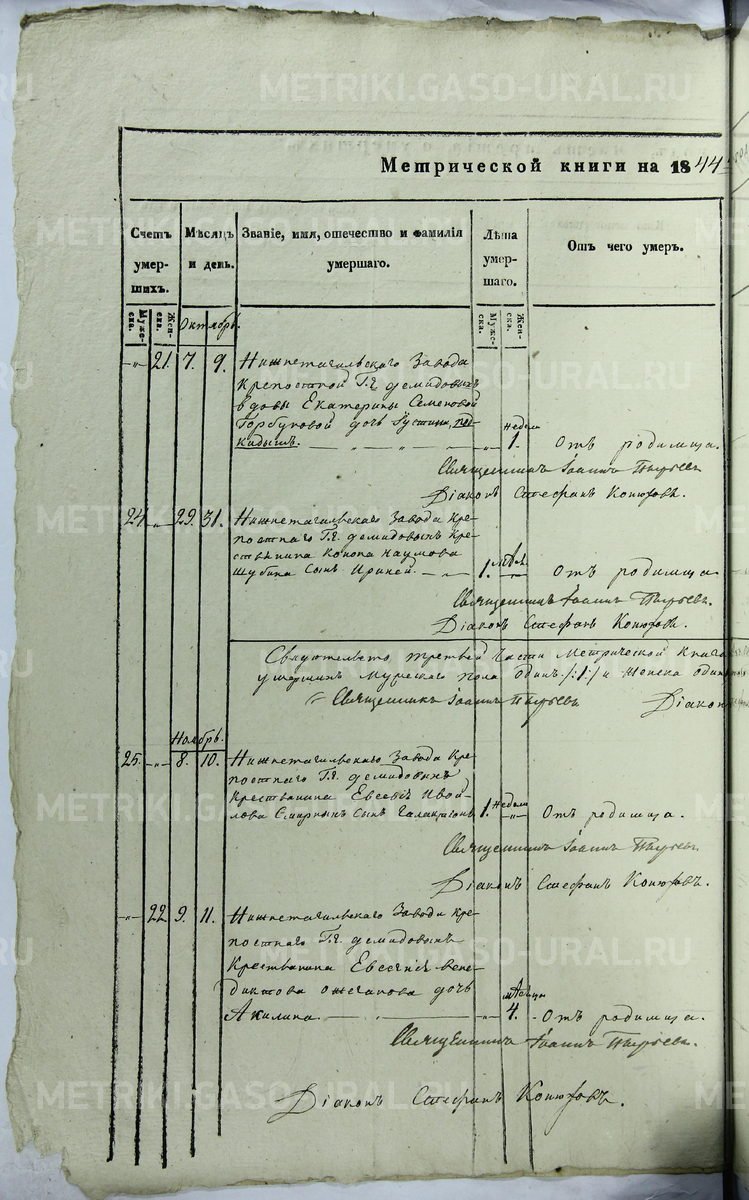 METRIKI.GASO-URAL.RU
Метрической книги на 1844
Счетъ умершихъ.
Мужеска.
Женска.
Мѣсяцъ и день.
Званіе, имя, отечество и фамилія умершаго.
Лѣта умершаго.
Мужеска.
Женска.
Отъ чего умеръ.
Октябрь.
-„- 21. 7. 9. Нижнетагильскаго Завода
крепостной Г.г. демидовыхъ
вдовы Екатерины Семеновой
Горбуновой дочь Iустина,
„ недели 1. Отъ родимца.
Священникъ Iоаннъ
Дiаконъ Стефанъ Конюховъ.
24 „ 29. 31. Нижнетагильскаго Завода кре-
постнаго Г.г. демидовыхъ кре-
стьянина Конона наумова
шубина Сынъ Ириней. 1. Отъ родимца
Священникъ Iоаннъ
Дiаконъ Стефанъ Конюховъ.
Свидѣтельство третьей Части Метрической Книги
умершихъ Мужескаго пола одинъ /:1:/ и Женска один
Священникъ Iоаннъ Дiаконъ
Ноябрь.
25. -„- 8. 10. Нижнетагильскаго Завода кре-
постнаго Г.г. демидовыхъ
Крестьянина Евсевiя
Смирныхъ Сынъ Галактiонъ 1. недели „ Отъ родимца.
Священникъ Iоаннъ
Дiаконъ Стефанъ Конюховъ.
-„- 22 9. 11. Нижнетагильскаго Завода кре-
постнаго Г.г. демидовыхъ
Крестьянина Евсевiя вене-
диктова ожегапова дочь
Акилина. „ мѣсяцы 4. Отъ родимца.
Священникъ Iоаннъ
Дiаконъ Стефанъ Конюховъ.